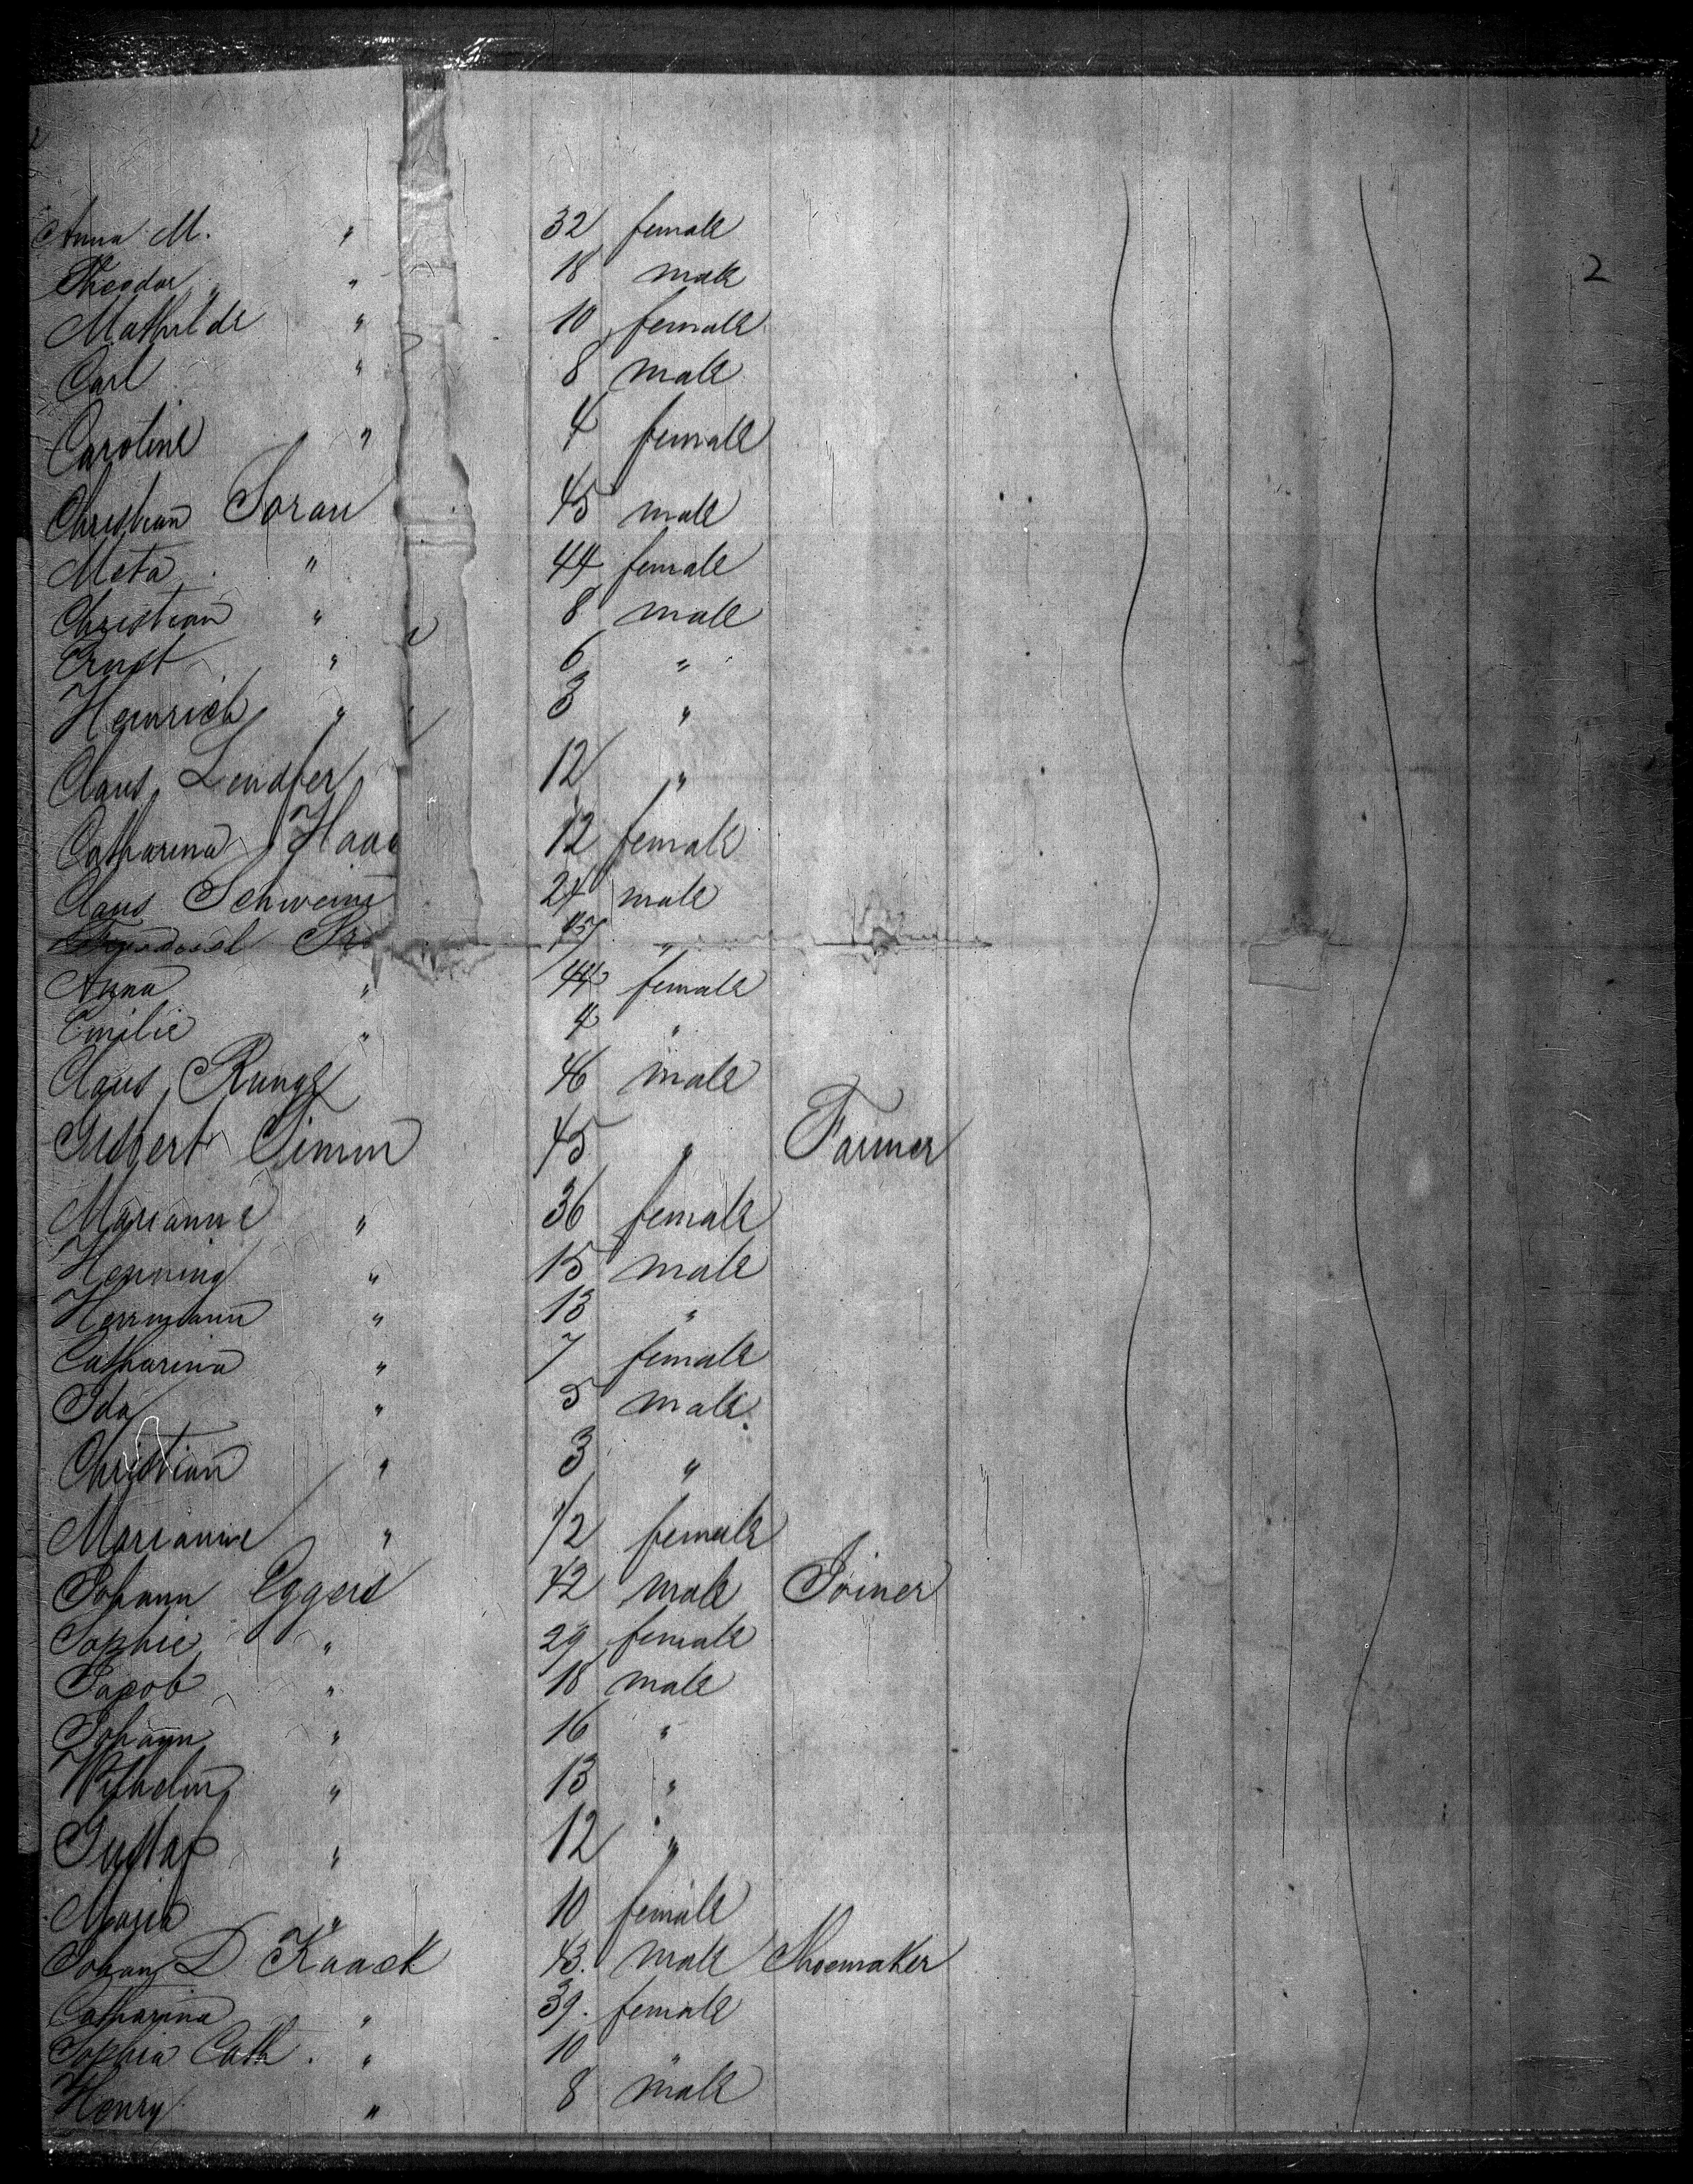 2
Anna M. " 32 female
Theodor " 18 male
Mathilde " 10 female
Carl " 8 male
Caroline " 4 female
Christian Sorau 45 male
Meta " 44 female
Christian " 8 male
Ernst " 6 "
Heinrich " 3 "
Claus 12 "
Catharina Haa 12 female
Claus Schweim 24 male
"
Anna " 44 female
Emilie " 4 "
Claus Runge 46 male
Timm 45 " Farmer
Marianne " 36 female
Henning " 15 male
Herrmann " 13 "
Catharina " 7 female
Ida " 5 male
Christian " 3 "
Marianne " 1/2 female
Johann Eggers 42 male Joiner
Sophie " 29 female
Jacob " 18 male
Johann " 16 "
Wilhelm " 13 "
Gustaf " 12 "
Maria " 10 female
Johann D Kaack 43. male Shoemaker
Catharina " 39. female
Sophia Cath. " 10 "
Henry " 8 male